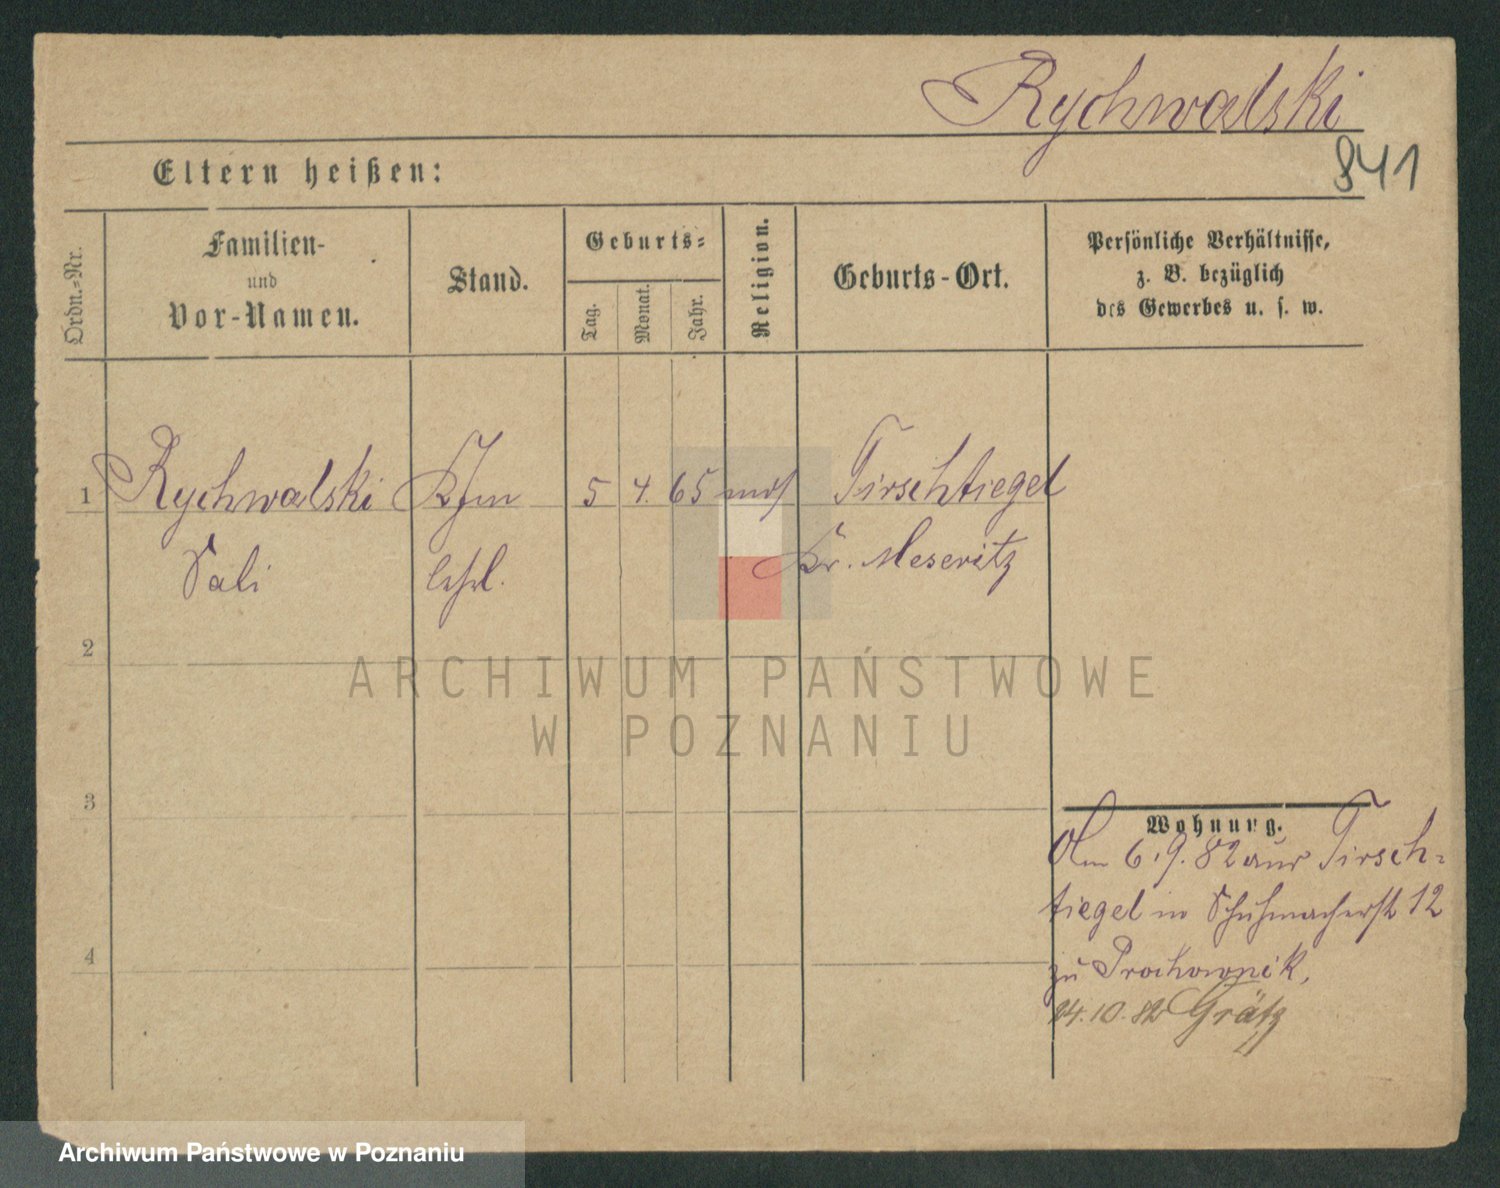 Rychwalski
841
Eltern heißen:
Ordn.-Nr.
Familien-
und
Vor-Namen.
Stand.
Geburts-
Tag.
Monat.
Jahr.
Religion.
Geburts-Ort.
Persönliche Verhältnisse,
z. B. bezüglich
des Gewerbes u. s. w.
1 Rychwalski Kfm 5 4. 65 mos Tirschtiegel
Sali lehrl. Kr. Meseritz
2
ARCHIWUM PAŃSTWOWE
W POZNANIU
3
Wohnung.
Am 6.9.82 aus Tirsch-
tiegel in Schuhmacherst 12
4
zu Prochownik,
24.10.82 Grätz
Archiwum Państwowe w Poznaniu